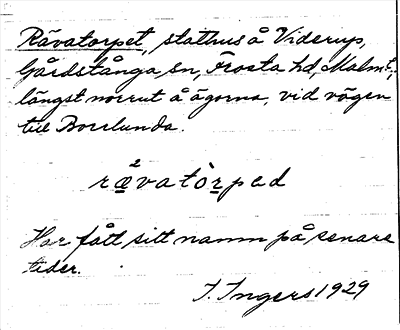 Rävatorpet, stathus å Viderup,
Gårdstånga sn, Frosta hd, Malm. l.,
längst norrut å ägorna, vid vägen
till Borelunda.
2
rævatòrpəd
Har fått sitt namn på senare
tider.
I. Ingers 1929